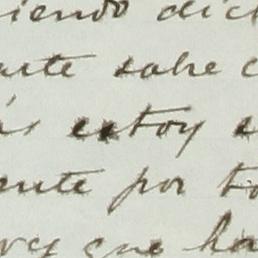 iendo dic
arte sabe c
ás estoy s
ente por to
que ha